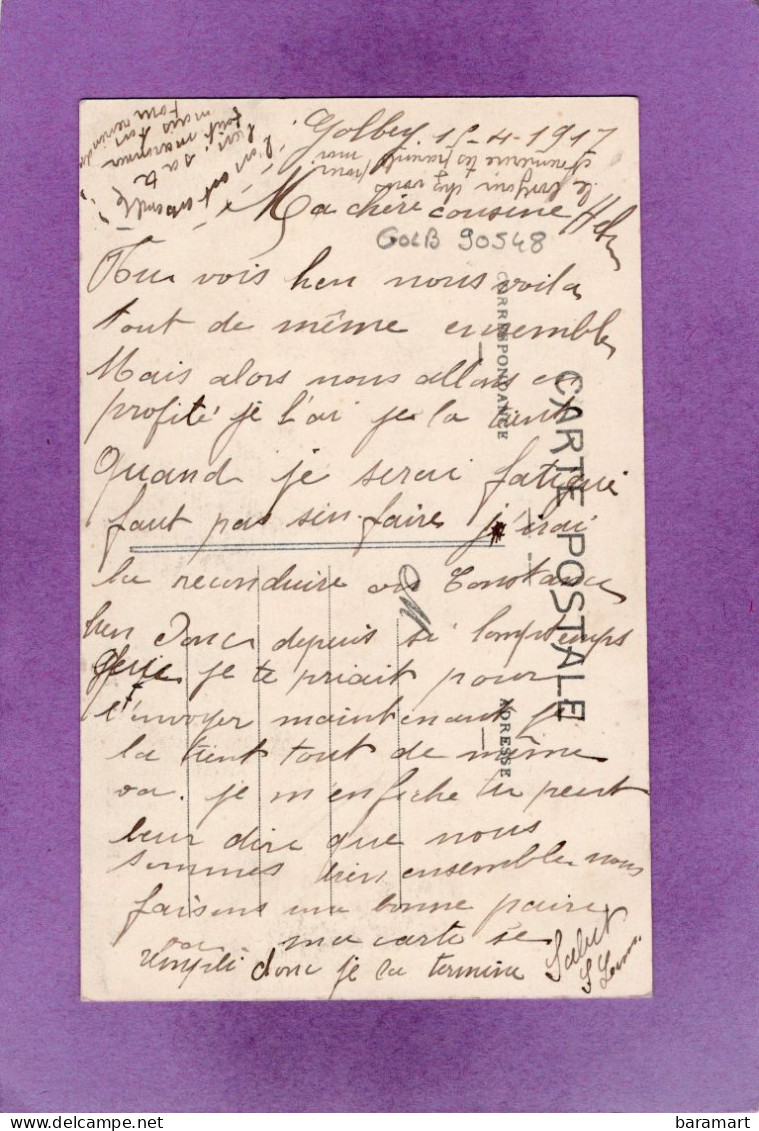 Golbey 15-4-1917
Ma chère cousine
GOLB 90548
Tue vois hen nous voila
tout de même ensemble
Mais alors nous allons en
profité je l'ai je la tient
Quand je serai fatigué
faut pas sen faire j'irai
la reconduire au Constance
hen Donc depuis si lomptemps
que je te priait pour
l'envoyer maintenant je
la tient tout de même
va. je m'enfiche tu peut
leur dire que nous
sommes bien ensemble nous
faisons une bonne paire
va ma carte se
rempli donc je la termine
Salut
CARTE POSTALE
CORRESPONDANCE
ADRESSE
baramart